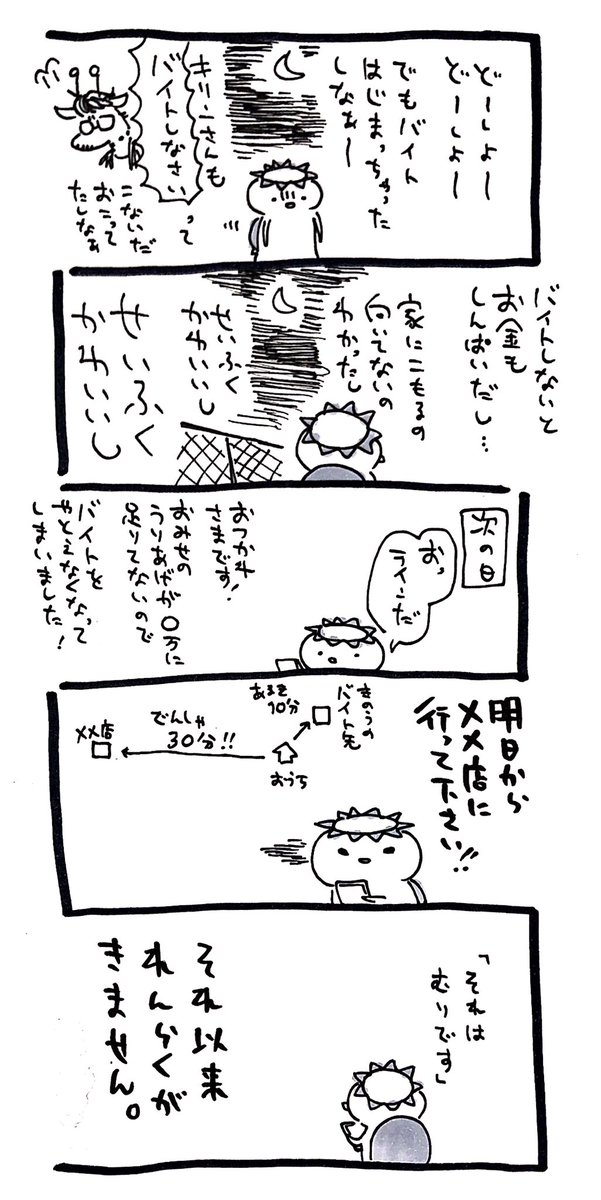 どーしよー
どーしよー
でもバイト
はじまっちゃった
しなぁー
キリンさんも
バイトしなさい
って
こないだ
おこって
たしなぁ
バイトしないと
お金も
しんぱいだし…
家にこもるの
向いてないの
わかったし
せいふく
かわいいし
せいふく
かわいいし
次の日
おっ
ラインだ
おつかれ
さまです!
おみせの
うりあげが〇万に
足りてないので
バイトを
やとえなくなって
しまいました!
明日から
××店に
行って下さい!!
きのうの
バイト先
あるき
10分
おうち
でんしゃ
30分!!
××店
「それは
むりです」
それ以来
れんらくが
きません。